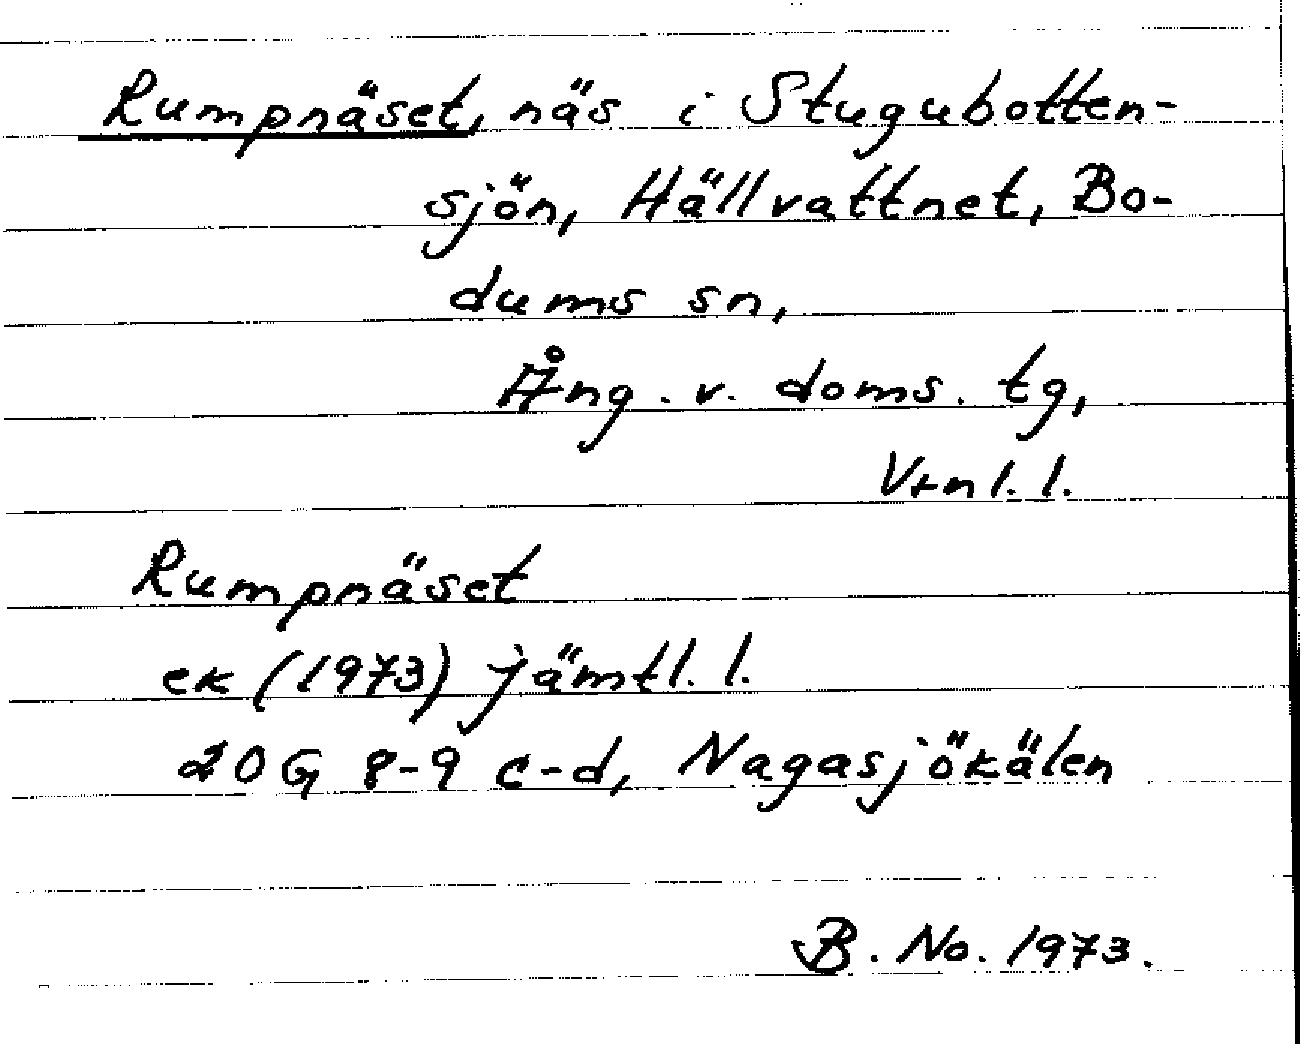 Rumpnäset, näs i Stugubotten-
sjön, Hällvattnet, Bo-
dums sn,
Ång. v. doms. tg,
Vrnl. l.
Rumpnäset
ek (1973) jämtl. l.
20G 8-9 c-d, Nagasjökälen
B. No. 1973.